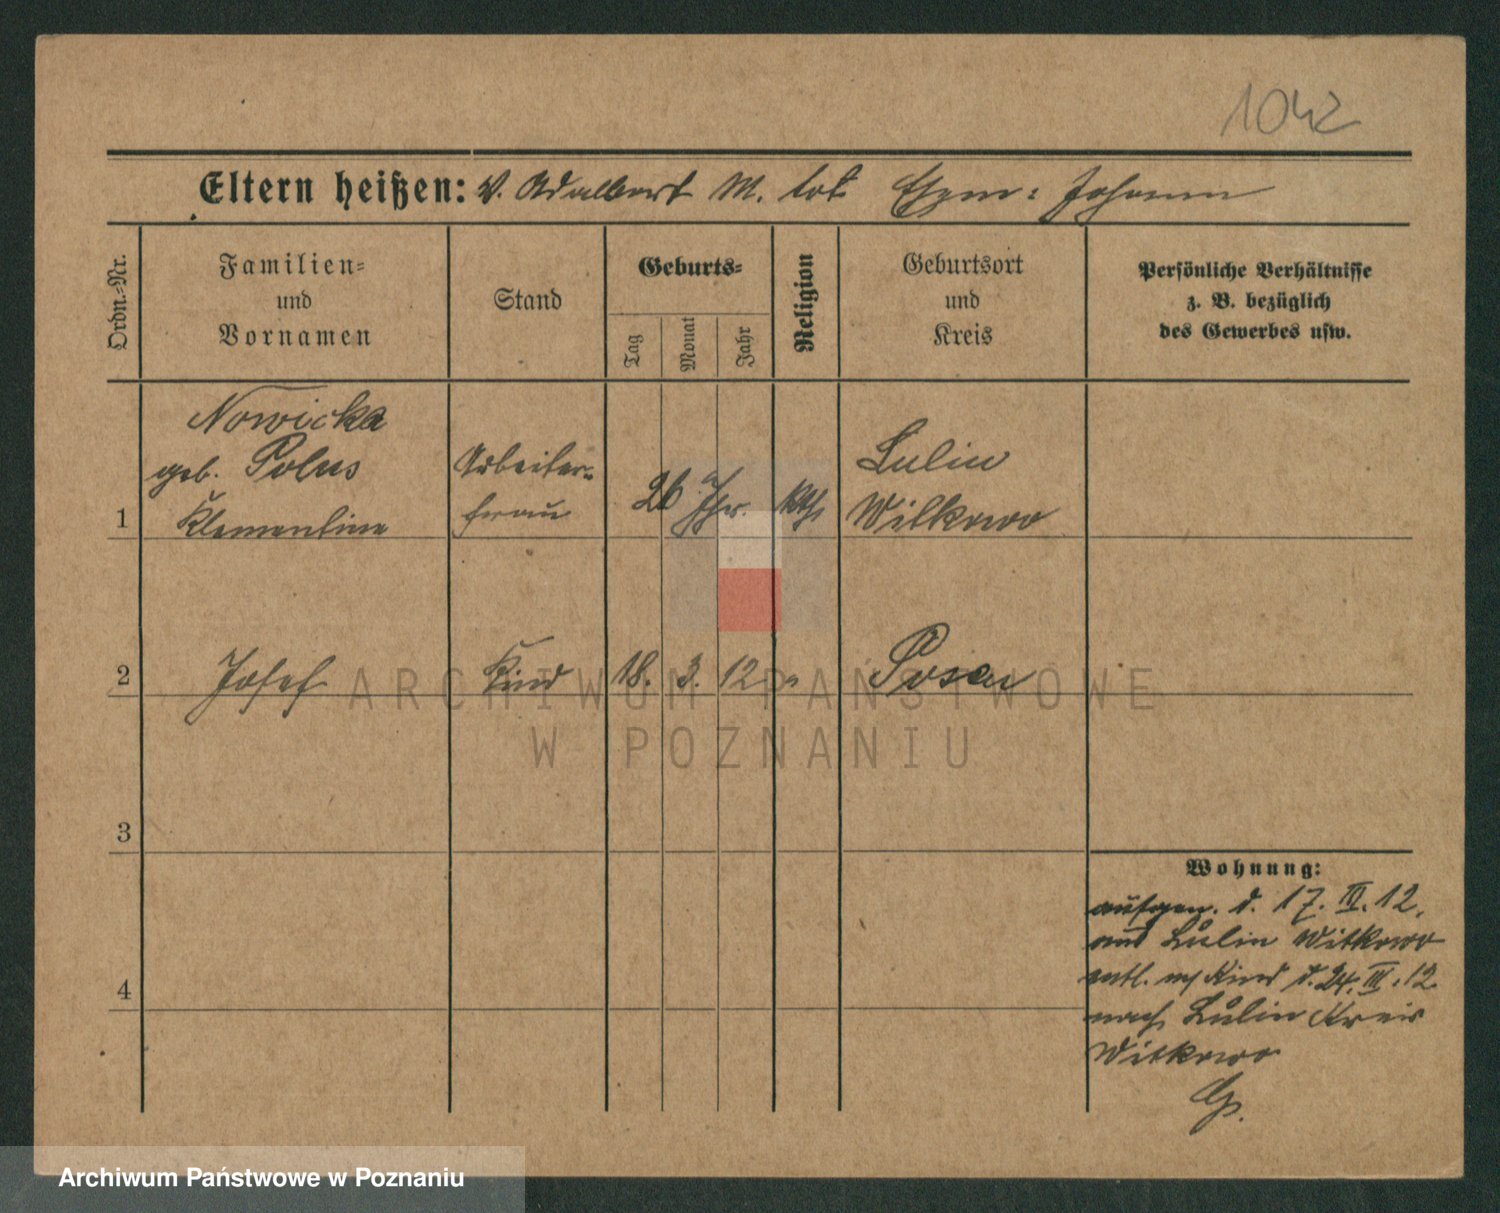 1042
Eltern heißen: V. Adalbert M. tot Ehem: Johann
Ordn.-Nr.
Familien-
und
Vornamen
Stand
Geburts-
Tag
Monat
Jahr
Religion
Geburtsort
und
Kreis
Persönliche Verhältnisse
z. B. bezüglich
des Gewerbes usw.
Nowicka
geb. Polus
1 Klementine
Arbeiter-
frau
26 Jhr. kth.
Lulin
Witkowo
2 Josef Kind 18. 3. 12 " Posen
3
4
Wohnung:
aufgen. d. 17. III. 12.
aus Lulin Witkowo
entl. m/ Kind d. 24. III. 12.
nach Lulin Kreis
Witkowo
ARCHIWUM PAŃSTWOWE
W POZNANIU
Archiwum Państwowe w Poznaniu